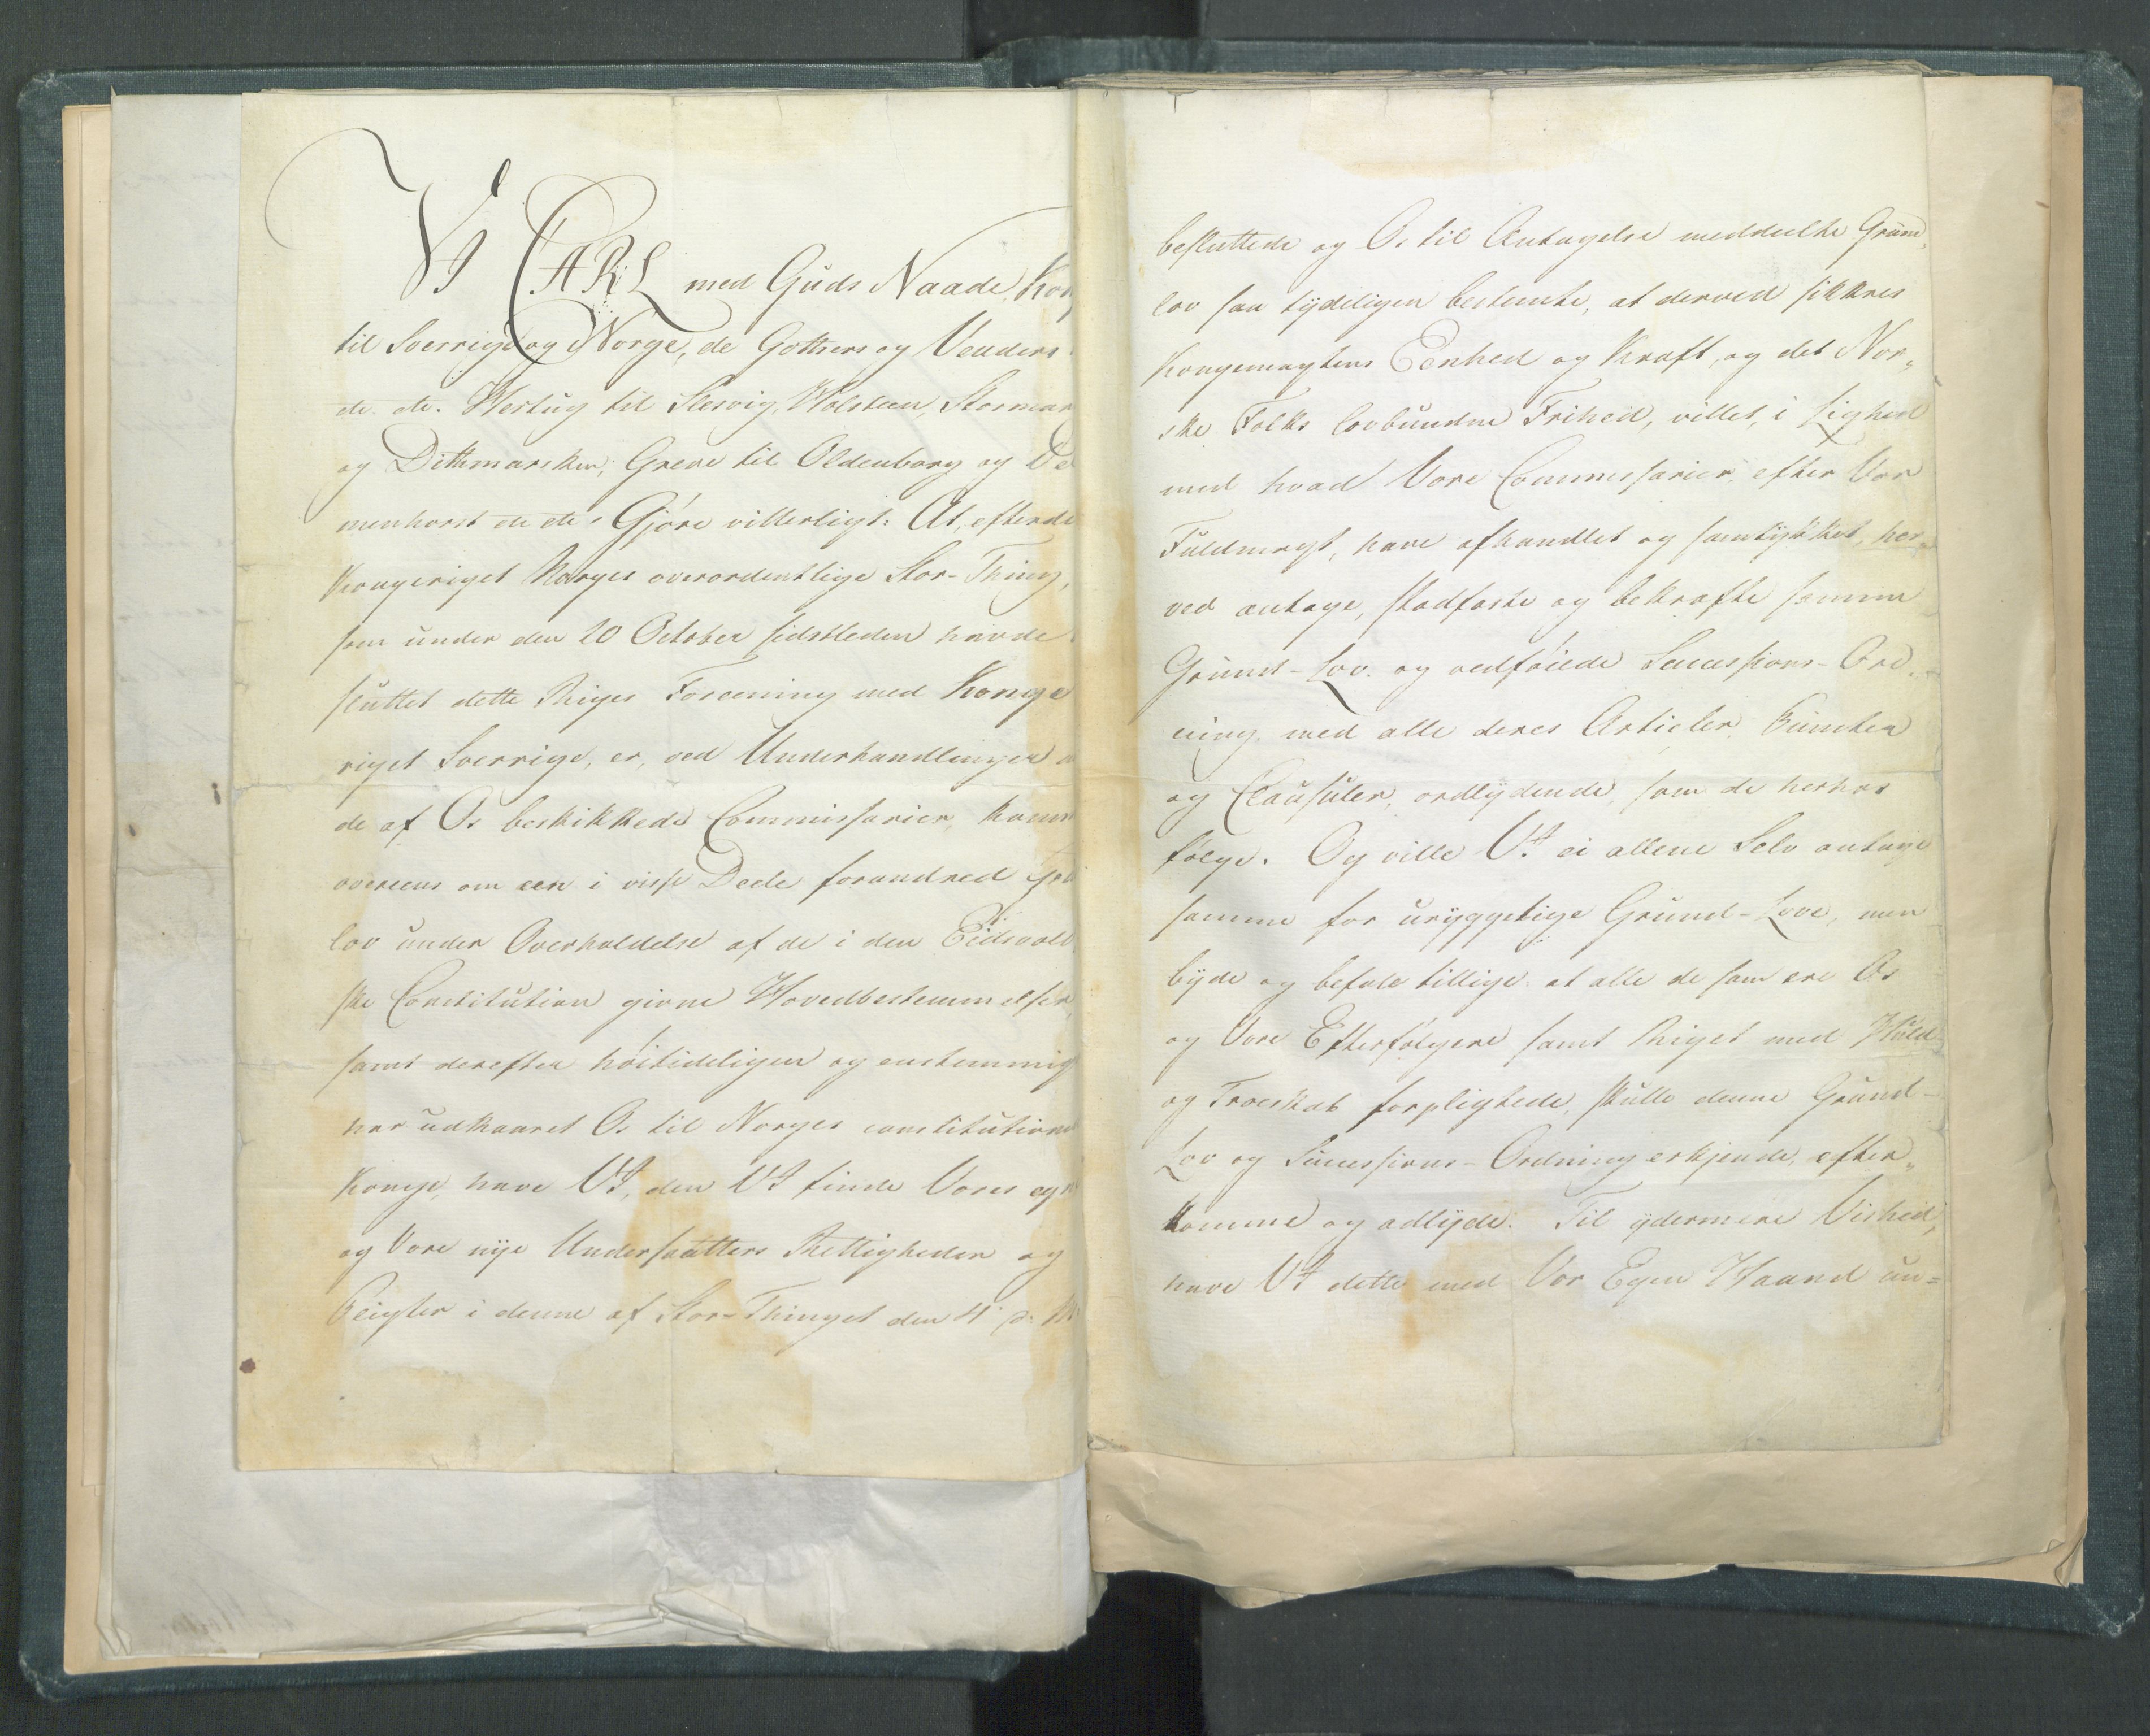 VI CARL med Guds Naade, Kon
til Sverrige og Norge, de Gothers og Venders
etc. etc. Hertug til Slesvig, Holsteen, Stormarn
og Ditmarsken, Greve til Oldenborg og Del
menhorst etc etc: Gjöre vitterligt: At, efterat
Kongeriget Norges overordentlige Stor-Thing,
som under den 20 October sidstleden havde
sluttet dette Riges Foreening med Konge
riget Sverrige, er, ved Underhandlinger
de af Os beskikkede Commissarier, kommet
overeens om een i visse Dele forandred Gru
lov under Overholdelse af de i den Eidsvold
ske Constitution givne Hovedbestemmelser,
samt derefter höitideligen og eenstemmig
har udkaaret Os til Norges constitutione
Konge, have Vi, den Vi finde Vores egne
og Vore nye Undersaatters Rettigheder og
Pligter i denne af Stor-Thinget den 4 d: M:
besluttede og Os til Antagelse meddeelte Grund„
lov saa tydeligen bestemte, at derved sikkres
Kongemagtens Eenhed og Kraft, og det Nor„
ske Folks lovbundne Frihed, villet, i Lighed
med hvad Vore Commissarier, efter Vor
Fuldmagt, have afhandlet og samtykket, her„
ved antage, stadfæste og bekræfte samme
Grund-Lov. og vedföiede Successions-Ord„
ning med alle deres Articler, Puncter
og Clausuler, ordlydende, som de herhos
fölge. Og ville Vi ei allene Selv antage
samme for uryggelige Grund-Love, men
byde og befale tillige at alle de som ere Os
og Vore Efterfölgere samt Riget med Huld
og Troeskab forpligtede, skulle denne Grund-
Lov og Successions-Ordning erkjende, efter„
komme og adlyde. Til ydermere Vished,
have Vi dette med Vor Egen Haand un=